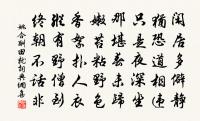 閑居多僻靜
猶恐道相違
只是夜深坐
那堪春未歸
嫩苔粘野色
香絮撲人衣
縱有野僧到
終朝不話非
姚合酬田就詞典網書